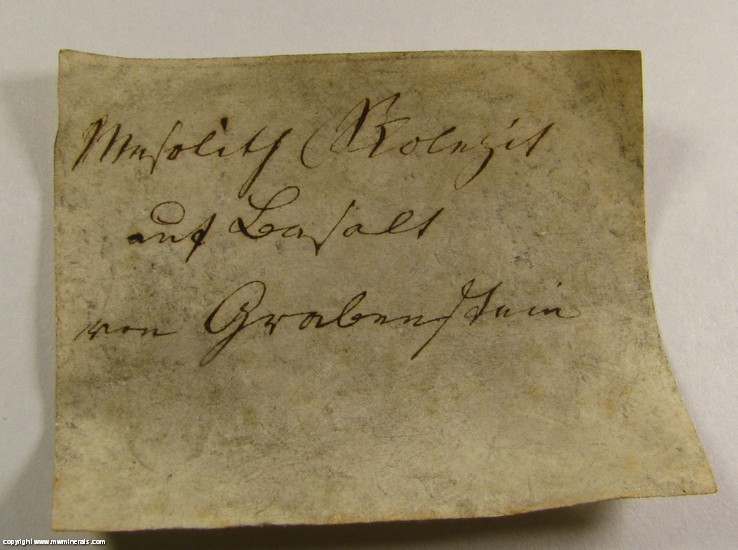 Mesolith (Skolezit
auf Basalt
von Grabenstein
copyright www.mwminerals.com